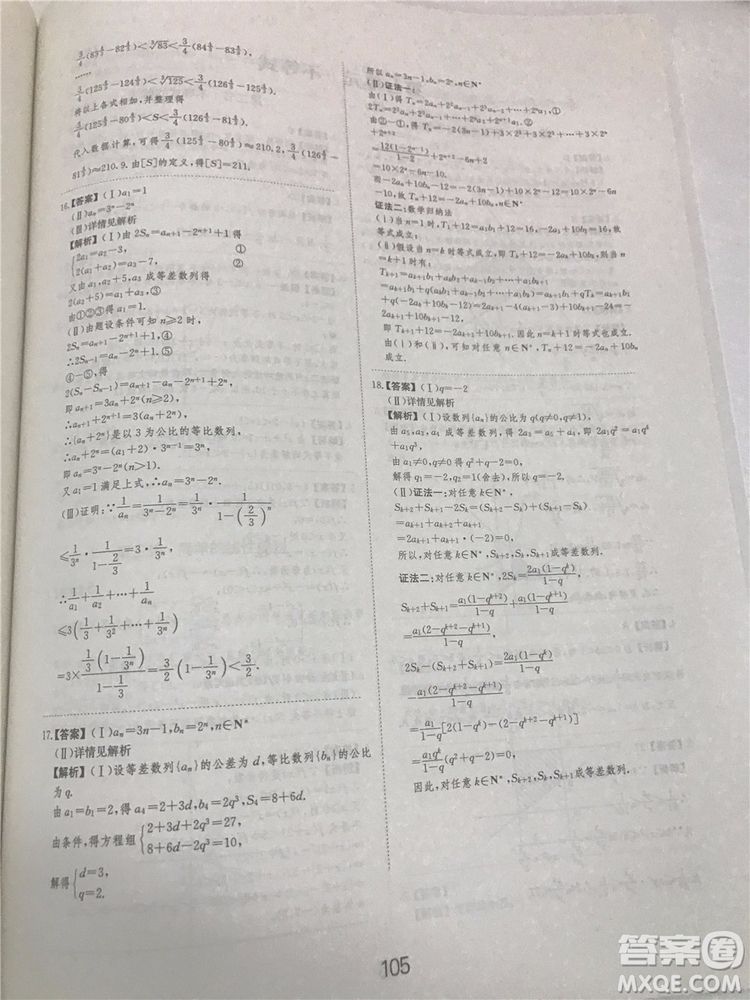 3/4(83^{4/3}-82^{4/3})<∛83<3/4(84^{4/3}-83^{4/3}).
……
3/4(125^{4/3}-124^{4/3})<∛125<3/4(126^{4/3}-125^{4/3}).
将以上各式相加,并整理得
3/4(125^{4/3}-80^{4/3})<S<3/4(126^{4/3}-81^{4/3}).
代入数据计算,可得3/4(125^{4/3}-80^{4/3})≈210.2,3/4(126^{4/3}-
81^{4/3})≈210.9.由[S]的定义,得[S]=211.
16.【答案】(Ⅰ)a₁=1
(Ⅱ)aₙ=3ⁿ-2ⁿ
(Ⅲ)详情见解析
【解析】(Ⅰ)由2Sₙ=aₙ₊₁-2ⁿ⁺¹+1得
{2a₁=a₂-3, ①
2(a₁+a₂)=a₃-7, ②
又由a₁,a₂+5,a₃成等差数列得
2(a₂+5)=a₁+a₃,③
由①②③得a₁=1.
(Ⅱ)由题设条件可知n≥2时,
2Sₙ=aₙ₊₁-2ⁿ⁺¹+1 ④
2Sₙ₋₁=aₙ-2ⁿ+1 ⑤
④-⑤得
2(Sₙ-Sₙ₋₁)=aₙ₊₁-aₙ-2ⁿ⁺¹+2ⁿ,
∴aₙ₊₁=3aₙ+2ⁿ(n≥2),
∴aₙ₊₁+2ⁿ⁺¹=3(aₙ+2ⁿ)(n≥2),
∴{aₙ+2ⁿ}是以3为公比的等比数列,
∴aₙ+2ⁿ=(a₁+2)·3ⁿ⁻¹=3ⁿ,
∴aₙ=3ⁿ-2ⁿ(n>1).
又a₁=1满足上式,∴aₙ=3ⁿ-2ⁿ.
(Ⅲ)证明:∵1/aₙ=1/(3ⁿ-2ⁿ)=1/3ⁿ·1/(1-(2/3)ⁿ)
≤1/3ⁿ·1/(1-2/3)=3·1/3ⁿ,
∴1/a₁+1/a₂+…+1/aₙ
≤3(1/3+1/3²+…+1/3ⁿ)
=3×(1/3(1-1/3ⁿ))/(1-1/3)=3/2(1-1/3ⁿ)<3/2.
17.【答案】(Ⅰ)aₙ=3n-1,bₙ=2ⁿ,n∈N*
(Ⅱ)详情见解析
【解析】(Ⅰ)设等差数列{aₙ}的公差为d,等比数列{bₙ}的公比
为q.
由a₁=b₁=2,得a₄=2+3d,b₄=2q³,S₄=8+6d.
由条件,得方程组{2+3d+2q³=27,
8+6d-2q³=10,
解得{d=3,
q=2.
所以aₙ=3n-1,bₙ=2ⁿ,n∈N*
(Ⅱ)证法一:
由(Ⅰ)得Tₙ=2aₙ+2²aₙ₋₁+2³aₙ₋₂+…+2ⁿa₁,①
2Tₙ=2²aₙ+2³aₙ₋₁+…+2ⁿa₂+2ⁿ⁺¹a₁,②
由②-①,得Tₙ=-2(3n-1)+3×2²+3×2³+…+3×2ⁿ
+2ⁿ⁺²
=12(1-2ⁿ⁻¹)/(1-2)+2ⁿ⁺²-6n+2
=10×2ⁿ-6n-10.
而-2aₙ+10bₙ-12=-2(3n-1)+10×2ⁿ-12=10×2ⁿ-6n
-10,故Tₙ+12=-2aₙ+10bₙ,n∈N*.
证法二:数学归纳法
(ⅰ)当n=1时,T₁+12=a₁b₁+12=16,-2a₁+10b₁=16,故
等式成立;
(ⅱ)假设当n=k时等式成立,即Tₖ+12=-2aₖ+10bₖ,则当n
=k+1时有:
Tₖ₊₁=aₖ₊₁b₁+aₖb₂+aₖ₋₁b₃+…+a₁bₖ₊₁
=aₖ₊₁b₁+q(aₖb₁+aₖ₋₁b₂+…+a₁bₖ)=aₖ₊₁b₁+qTₖ=aₖ₊₁b₁
+q(-2aₖ+10bₖ-12)=2aₖ₊₁-4(aₖ₊₁-3)+10bₖ₊₁-24
=-2aₖ₊₁+10bₖ₊₁-12.
即Tₖ₊₁+12=-2aₖ₊₁+10bₖ₊₁.因此n=k+1时等式也成立.
由(ⅰ)和(ⅱ),可知对任意n∈N*,Tₙ+12=-2aₙ+10bₙ
成立.
18.【答案】(Ⅰ)q=-2
(Ⅱ)详情见解析
【解析】(Ⅰ)设数列{aₙ}的公比为q(q≠0,q≠1),
由a₅,a₃,a₄成等差数列,得2a₃=a₅+a₄,即2a₁q²=a₁q⁴
+a₁q³.
由a₁≠0,q≠0得q²+q-2=0,
解得q=-2,q₂=1(舍去),所以q=-2.
(Ⅱ)证法一:对任意k∈N*,
Sₖ₊₂+Sₖ₊₁-2Sₖ=(Sₖ₊₂-Sₖ)+(Sₖ₊₁-Sₖ)
=aₖ₊₁+aₖ₊₂+aₖ₊₁
=2aₖ₊₁+aₖ₊₁·(-2)=0
所以,对任意k∈N*,Sₖ₊₂,Sₖ,Sₖ₊₁成等差数列.
证法二:对任意k∈N*,2Sₖ=2a₁(1-qᵏ)/(1-q),
Sₖ₊₂+Sₖ₊₁=a₁(1-qᵏ⁺²)/(1-q)+a₁(1-qᵏ⁺¹)/(1-q)
=a₁(2-qᵏ⁺²-qᵏ⁺¹)/(1-q),
2Sₖ-(Sₖ₊₂+Sₖ₊₁)=2a₁(1-qᵏ)/(1-q)
-a₁(2-qᵏ⁺²-qᵏ⁺¹)/(1-q)
=a₁/(1-q)[2(1-qᵏ)-(2-qᵏ⁺²-qᵏ⁺¹)]
=a₁qᵏ/(1-q)(q²+q-2)=0,
因此,对任意k∈N*,Sₖ₊₂,Sₖ,Sₖ₊₁成等差数列.
105
答案圈
MXQE.COM